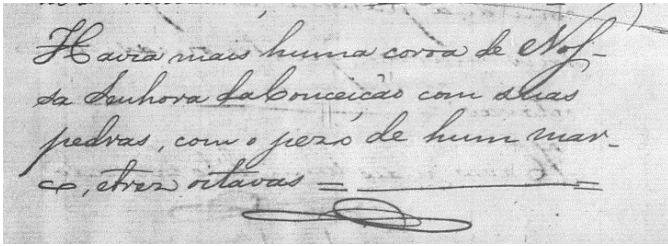 Havia mais huma coroa de Nos-
sa Senhora da Conceição com suas
pedras, com o pezo de hum mar-
co, e trez oitavas =